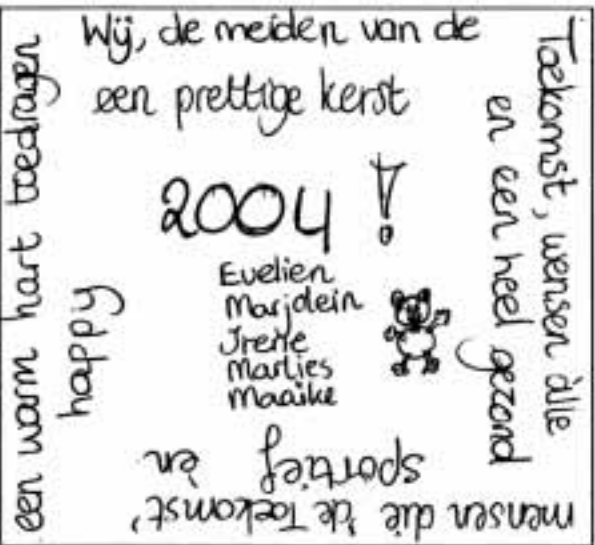 Wij, de meiden van de
Toekomst, wensen àlle
mensen die 'de Toekomst'
een warm hart toedragen
een prettige kerst
en een heel gezond
sportief èn
happy
2004!
Evelien
Marjolein
Irene
Marlies
Maaike